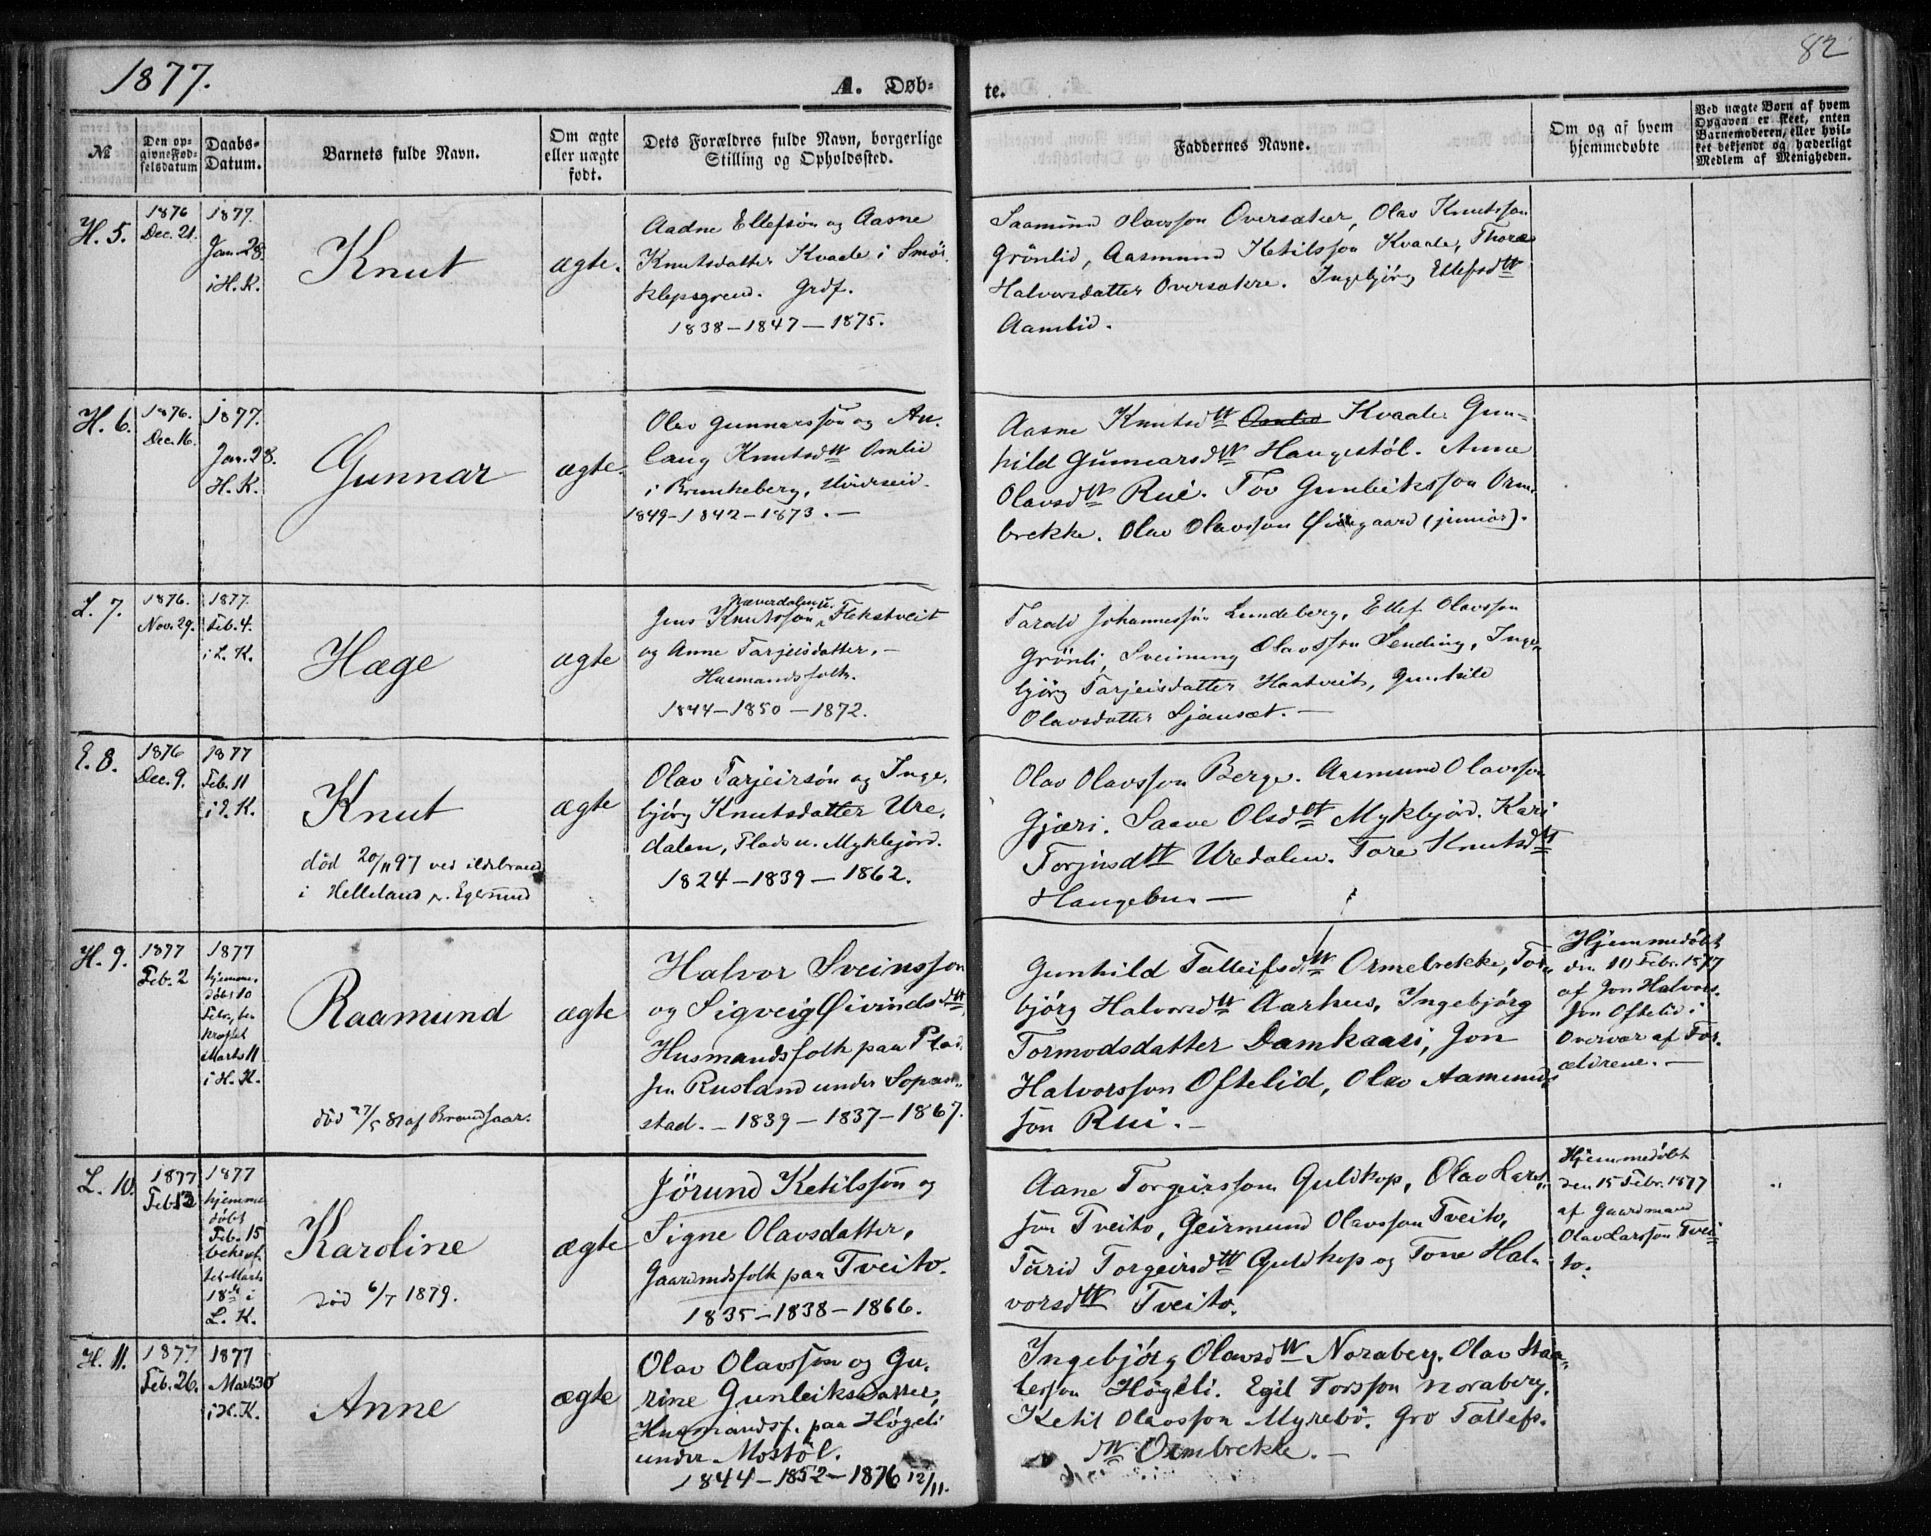 1877.
A. Døb-
te.
82
№
Den op-
givne Fød-
selsdatum
Daabs-
Datum.
Barnets fulde Navn.
Om ægte
eller uægte
født.
Dets Forældres fulde Navn, borgerlige
Stilling og Opholdssted.
Faddernes Navne.
Om og af hvem
hjemmedøbte
Ved uægte Børn af hvem
Opgaven er skeet, enten
Barnemoderen, eller hvil-
ket bekjendt og hæderligt
Medlem af Menigheden.
H. 5.
1876
Dec. 21.
1877.
Jan. 28.
i H. K.
Knut
ægte.
Aadne Ellefsøn og Aasne
Knutsdatter Kvaale i Smør
klepsgrend. Grdf.
1838 – 1847 – 1875.
Saamund Olavsson Oversæter, Olav Knutsson
Grønlid, Aasmund Ketilsson Kvaale, Thore
Halvorsdatter Oversætere. Ingebjørg Ellefsdtt
Aamlid.
H. 6.
1876.
Dec. 16.
1877.
Jan. 28.
H. K.
Gunnar
ægte.
Olav Gunnarsson og An-
laug Knutsdtt Omlid
i Brunkeberg, Hvideseid.
1849 – 1842 – 1873. –
Aasne Knutsdtt Omlid Kvaale. Gun-
hild Gunnarsdtt Haugestøl. Anne
Olavsdtt Rui. Tov Gunleiksson Orm-
brekke. Olav Olavsson Øigaard (junior).
L. 7.
1876.
Nov. 29.
1877.
Feb. 4.
i L. K.
Hæge
ægte
Næverdalen u.
Jens Knutssøn, Flekstveit
og Anne Tarjeisdatter. –
Husmandsfolk.
1844 – 1850 – 1872.
Tarald Johannessøn Lundeberg, Ellef Olavsson
Grønli, Sveinung Olavsson Sending, Inge-
bjørg Tarjeisdatter Haatveit, Gunhild
Olavsdatter Ljansæt. –
E. 8.
1876
Dec. 9.
1877
Feb. 11
i E. K.
Knut
død 20/11 97 ved ildsbrand
i Helleland pr. Egersund
ægte
Olav Tarjeirsøn og Inge-
bjørg Knutsdatter Ure-
dalen, Plads u. Myklejord.
1824 – 1839 – 1862.
Olav Olavsson Berge. Aasmund Olavsson
Gjæri. Saave Olsdtt Mykbjørd. Kari
Torjusdtt Uredalen. Tore Knutsdtt
Haugebu. –
H. 9.
1877
Feb. 2
1877
hjemme-
døbt 10
Febr., be-
kræftet
Marts 11
i H. K.
Raamund
død 27/5 81 af Brandsaar.
ægte
Halvor Sveinsson
og Sigveig Øivindsdtt
Husmandsfolk paa Plad-
sen Rusland under Sopan-
stad. – 1839 – 1837 – 1867.
Gunhild Talleifsdtt Ormebrekke, Tor-
bjørg Halvorsdtt Aarhus, Ingebjørg
Tormodsdatter Damkaasi, Jon
Halvorsson Oftelid, Olav Aamunds
son Rui. –
Hjemmedøbt
den 10 Febr. 1877
af Jon Halvors-
son Oftelid i
Overvær af For-
ældrene. –
L. 10.
1877
Feb. 12
1877
hjemme
døbt
Feb. 15
bekræf-
tet Marts
18de i
L. K.
Karoline
død 6/7 1879.
ægte
Jørund Ketilssøn og
Signe Olavsdatter,
Gaardmdsfolk paa Tveito.
1835 – 1838 – 1866.
Aane Torgeirsson Guldkop, Olav Lars-
son Tveito, Geirmund Olavsson Tveito,
Turid Torgeirsdtt Guldkop og Tone Hal-
vorsdtt Tveito.
Hjemmedøbt
den 15 Febr. 1877
af Gaardmand
Olav Larsson Tvei
to.
"
H. 11.
1877
Feb. 26.
1877
Marts 30
i H. K.
Anne
ægte
Olav Olavsson og Gu-
rine Gunleiksdatter,
Husmandsf. paa Høgeli
under Mostøl.
1844 – 1852 – 1876 12/11.
Ingebjørg Olavsdtt Noraberg. Olav Staa-
lesson Høgeli. Egil Torsson Noraberg.
Ketil Olavsson Myrebø. Gro Tallefs-
dtt Ormbrekke. –